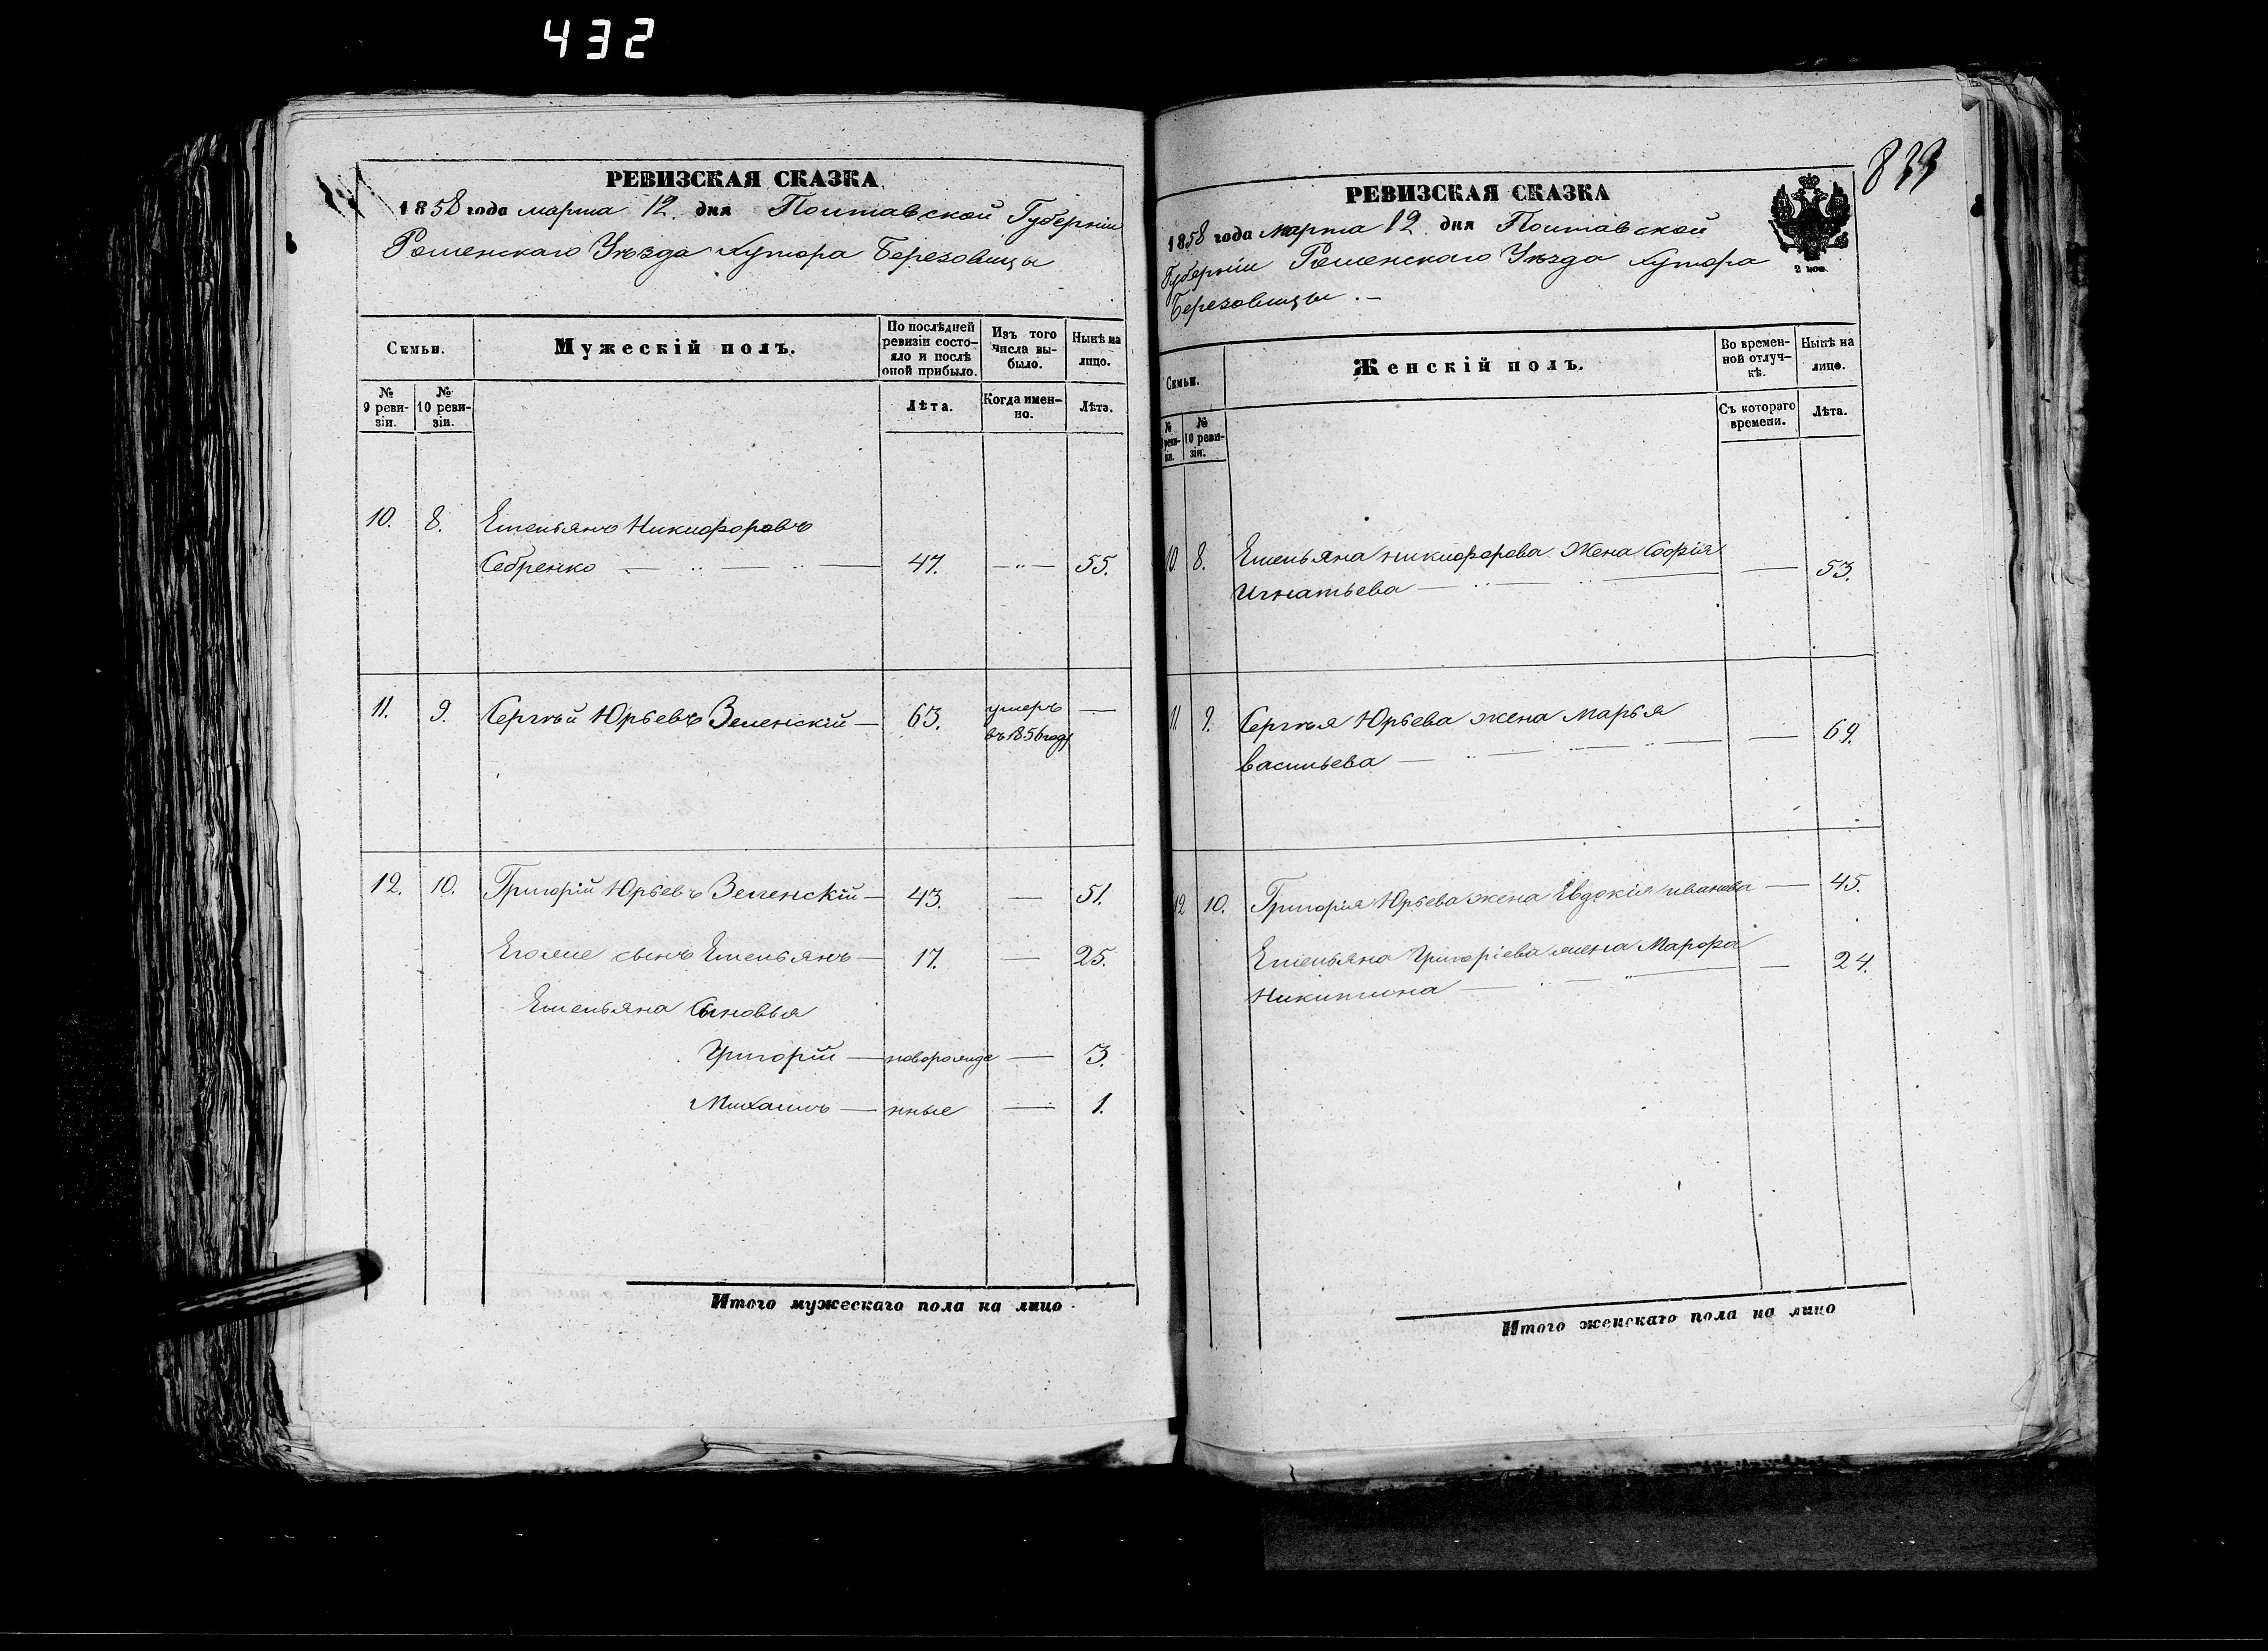 432
РЕВИЗСКАЯ СКАЗКА
1858 года марта 12. дня Полтавской Губерніи
Роменскаго Уѣзда Хутора Березовицы
Семьи.
Мужескій полъ.
По послѣдней ревизіи состояло и послѣ оной прибыло.
Изъ того числа выбыло.
Нынѣ на лицо.
№ 9 ревизіи.
№ 10 ревизіи.
Лѣта.
Когда именно.
Лѣта.
10. 8. Емельянъ Никифоровъ
Себренко 47. 55.
11. 9. Сергѣй Юрьевъ Зеленскій 63. умеръ въ 1856 году
12. 10. Григорій Юрьевъ Зеленскій 43. 51.
Его же сынъ Емельянъ 17. 25.
Емельяна Сыновья
Григорій новорожде 3.
Михаилъ нные 1.
Итого мужескаго пола на лицо
РЕВИЗСКАЯ СКАЗКА
1858 года марта 12 дня Полтавской
Губерніи Роменскаго Уѣзда Хутора
Березовицы.
2 коп.
Семьи.
Женскій полъ.
Во временной отлучкѣ.
Нынѣ на лицо.
№ реви-
зіи.
№ 10 ревизіи.
Съ котораго времени.
Лѣта.
10. 8. Емельяна Никифорова Жена Софія
Игнатьева 53.
11. 9. Сергѣя Юрьева жена Марья
Васильева 69.
12 10. Григорія Юрьева жена Евдокія Иванова 45.
Емельяна Григоріева жена Марфа
Никитина 24.
Итого женскаго пола на лицо